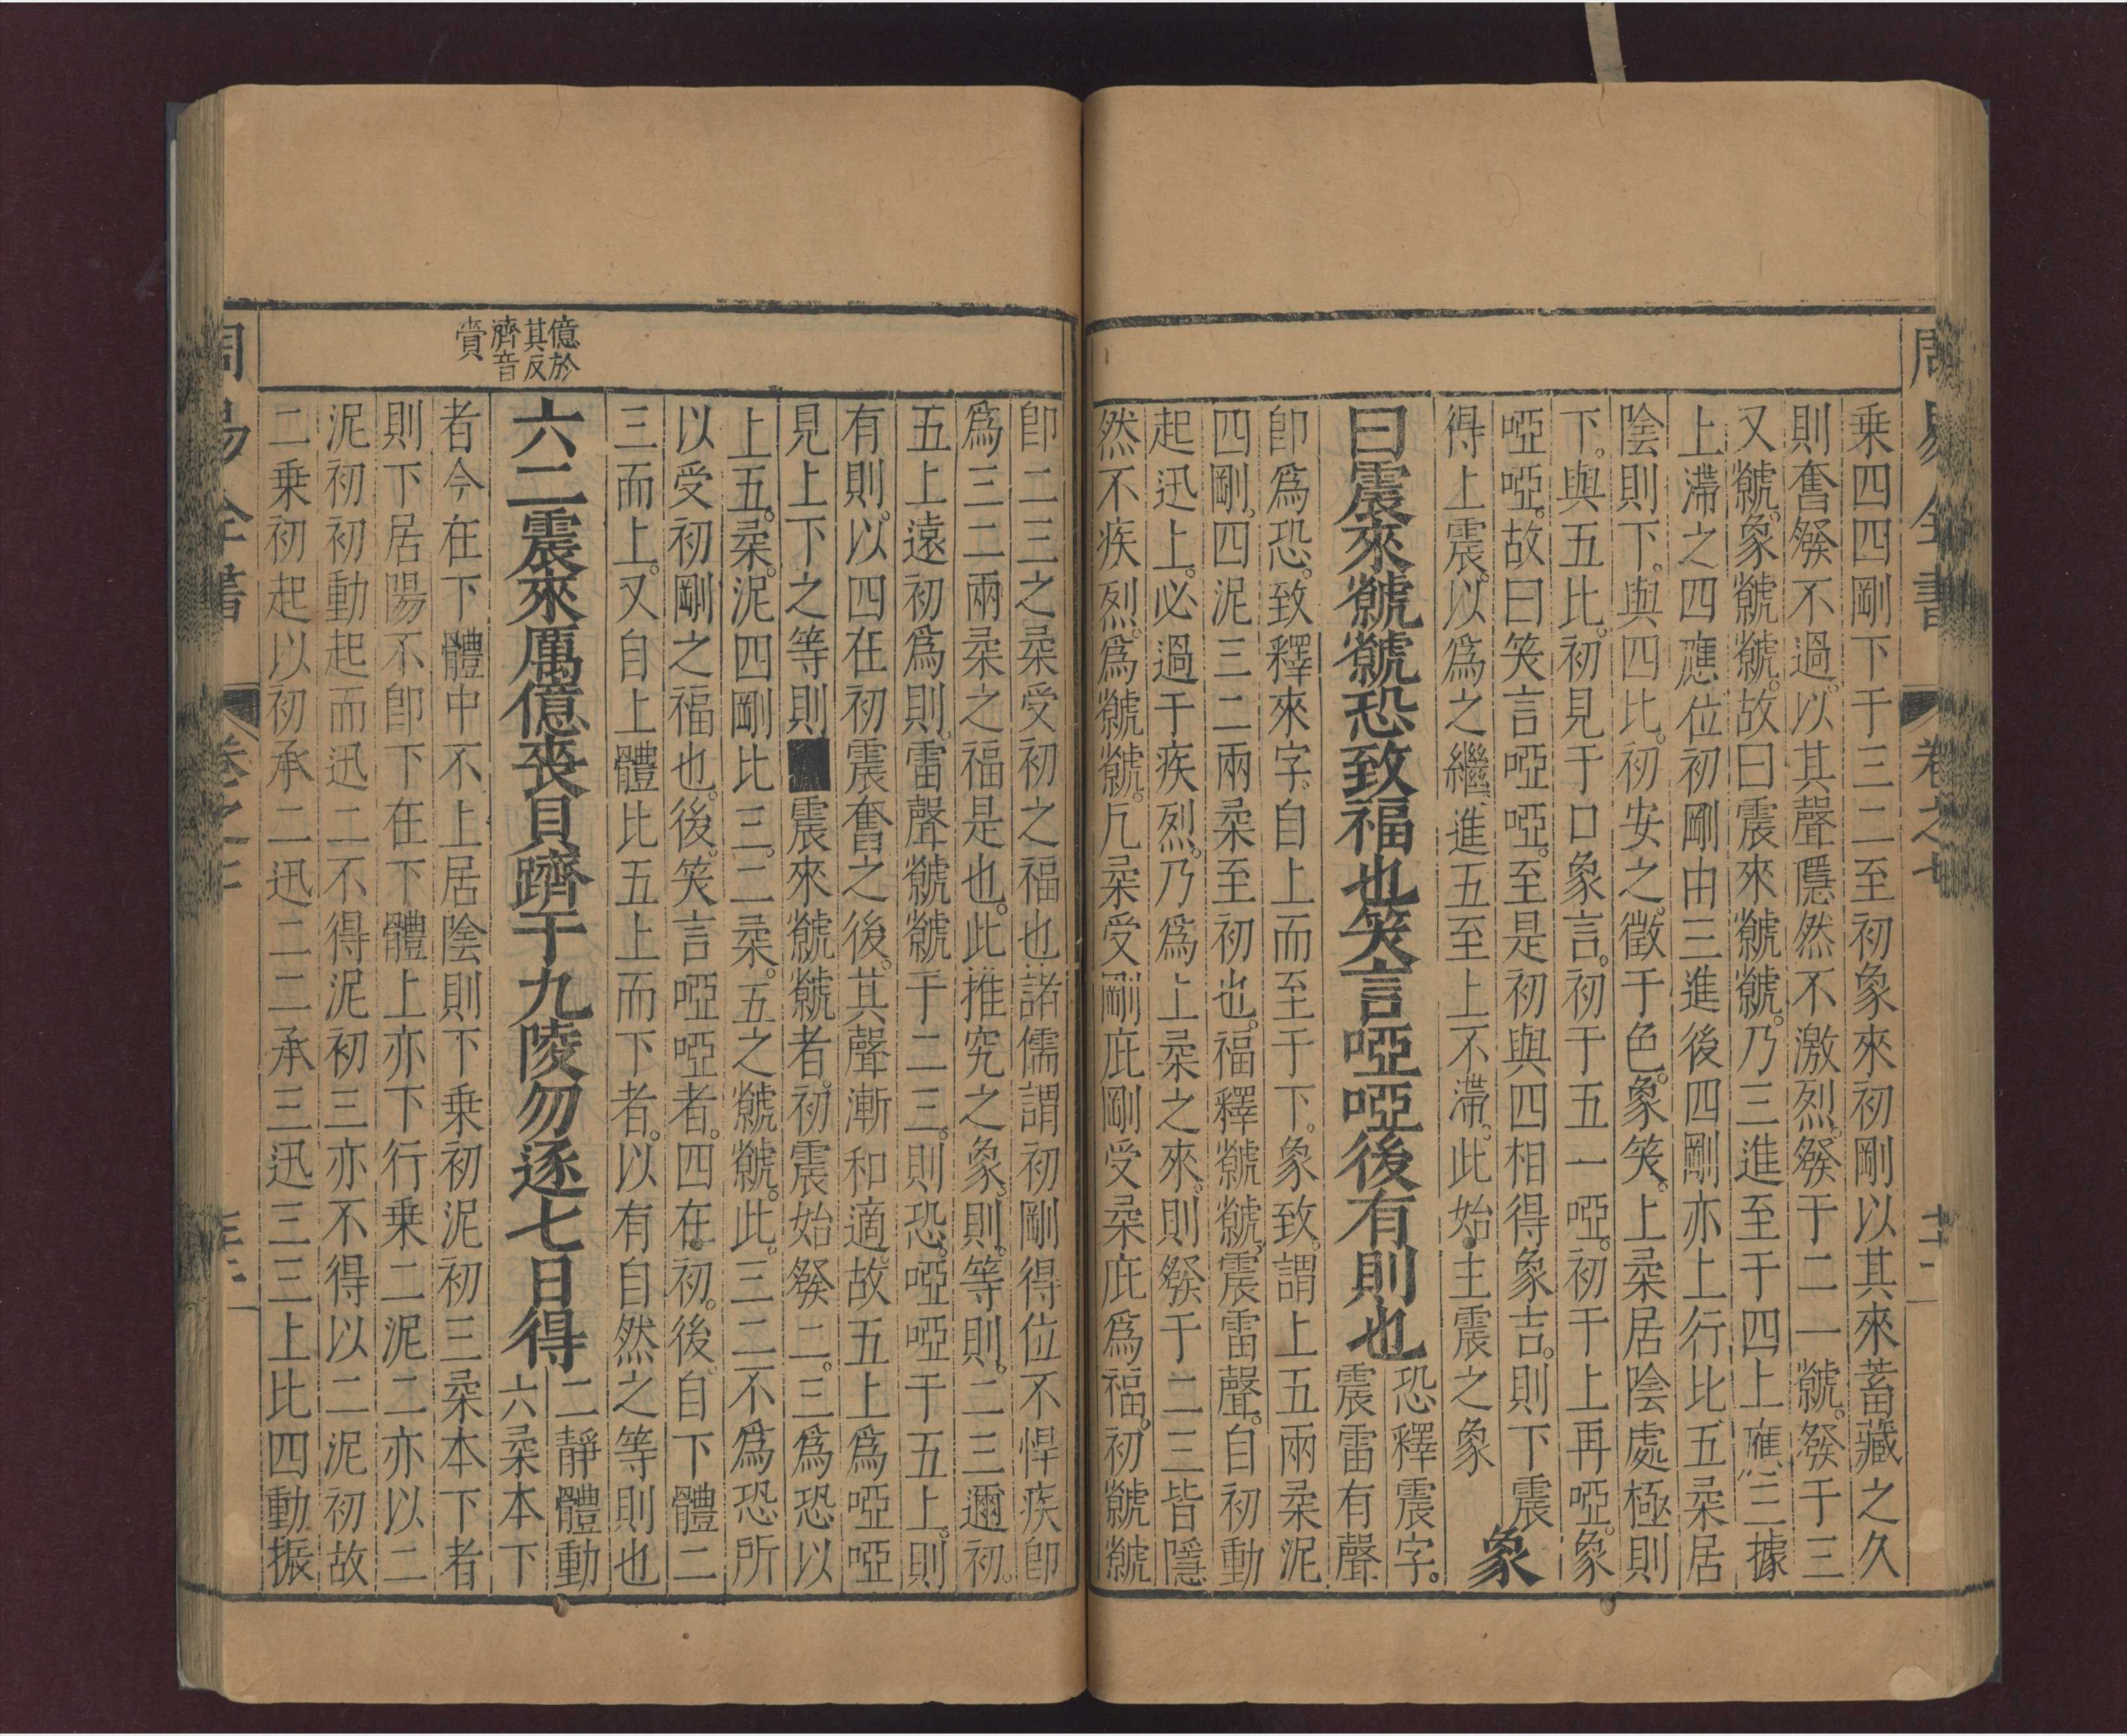 周易全書 卷之七
乗四四剛下于三二至初象來初剛以其來蓄藏之久
則奮發不過以其聲隱然不激烈發于二一虩發于三
又虩象虩虩故曰震來虩虩乃三進至于四上應三據
上滯之四應位初剛由三進後四剛亦上行比五柔居
陰則下與四比初安之徵于色象笑上柔居陰處極則
下與五比初見于口象言初于五一啞初于上再啞象
啞啞故曰笑言啞啞至是初與四相得象吉則下震
得上震以爲之繼進五至上不滯此始主震之象 象
曰震來虩虩恐致福也笑言啞啞後有則也
恐釋震字
震雷有聲
卽爲恐致釋來字自上而至于下象致謂上五兩柔泥
四剛四泥三二兩柔至初也福釋虩虩震雷聲自初動
起迅上必過于疾烈乃爲上柔之來則發于二三皆隱
然不疾烈爲虩虩凡柔受剛庇剛受柔庇爲福初虩虩
卽二三之柔受初之福也諸儒謂初剛得位不悍疾卽
爲三二兩柔之福是也此推究之象則等則二三邇初
五上遠初爲則雷聲虩虩于二三則恐啞啞于五上則
有則以四在初震奮之後其聲漸和適故五上爲啞啞
見上下之等則震來虩虩者初震始發二三爲恐以
上五柔泥四剛比三二柔五之虩虩此三二不爲恐所
以受初剛之福也後笑言啞啞者四在初後自下體二
三而上又自上體比五上而下者以有自然之等則也
億於
其反
濟音
賷
六二震來厲億喪貝躋于九陵勿逐七日得
二靜體動
六柔本下
者今在下體中不上居陰則下乗初泥初三柔本下者
則下居陽不卽下在下體上亦下行乗二泥二亦以二
泥初初動起而迅二不得泥初三亦不得以二泥初故
二乗初起以初承二迅二二承三迅三三上比四動振
周易全書